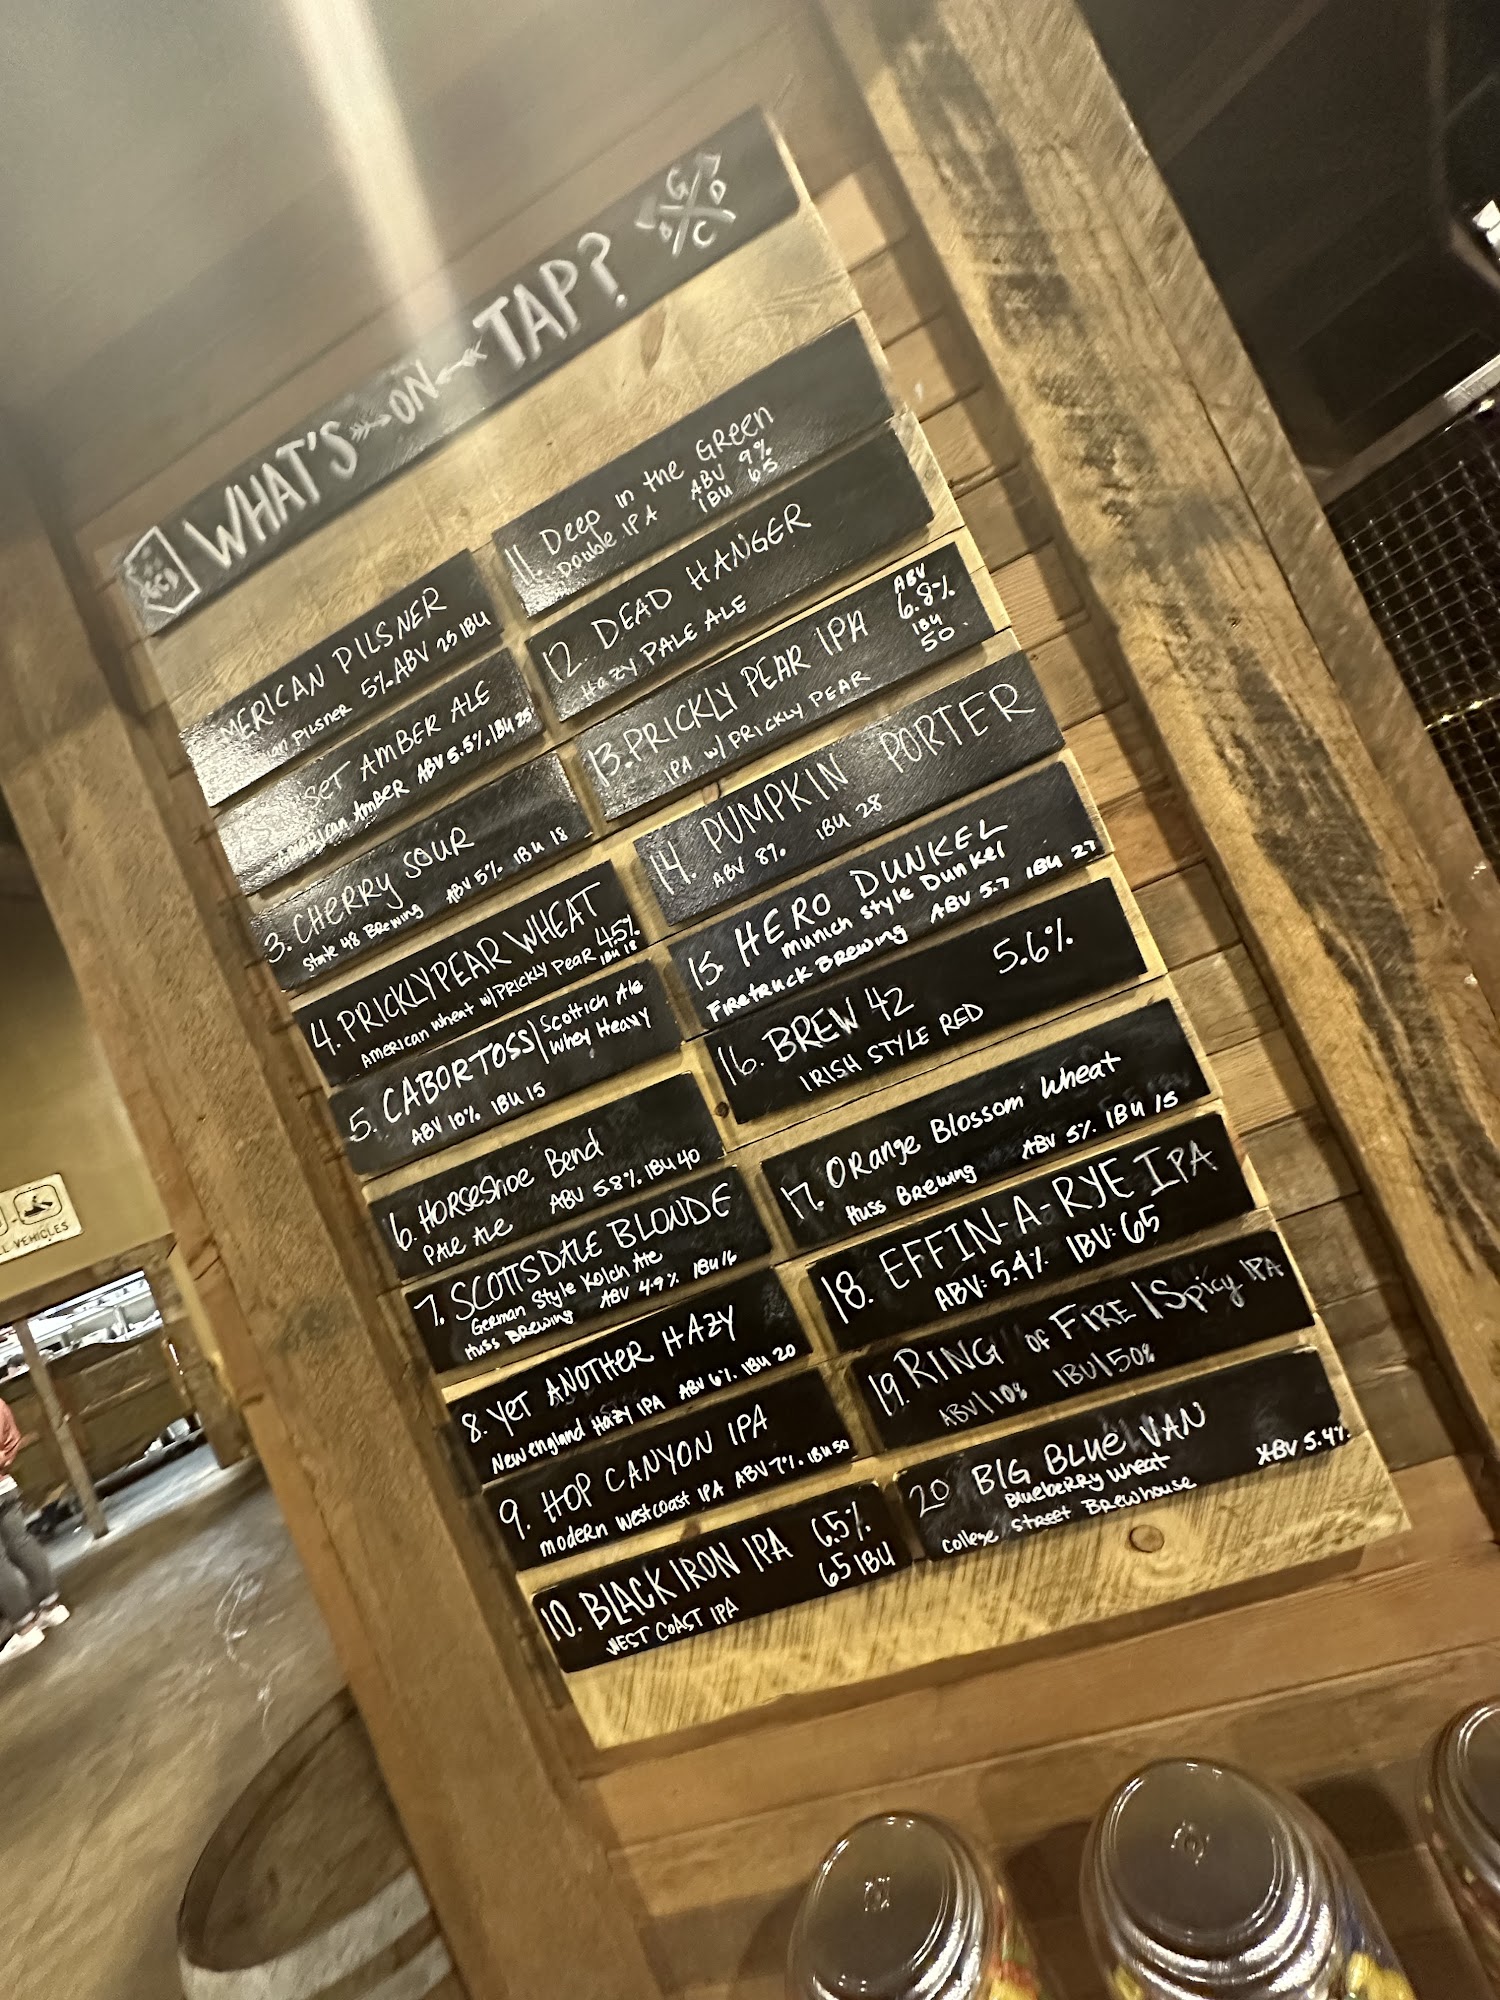 WHAT'S ON TAP?
GDC
MERICAN PILSNER
ian PILSNER 5% ABV 25 IBU
SET AMBER ALE
American AmBER ABV 5.5% IBU 25
3. CHERRY SOUR
State 48 BREWING ABV 5% IBU 18
4. PRICKLY PEAR WHEAT 4.5%
AMERICAN wheat w/ PRICKLY PeaR IBU 18
5. CABORTOSS | Scottich Ale
Whey Heavy
ABV 10% IBU 15
6. HORSeShoe Bend
PALE ALe ABV 5.8% IBU 40
7. SCOTTSDALE BLONDE
German Style Kolch Ale
Huss BRewing ABV 4.9% IBU 16
8. YeT ANOTHER HAZY
New england HAZY IPA ABV 6% IBU 20
9. HOP CANYON IPA
modern westcoast IPA ABV 7% IBU 50
10. BLACK IRON IPA 6.5%
65 IBU
WEST COAST IPA
11. Deep in the GReen
Double IPA ABV 9%
IBU 65
12. DEAD HANGER
Hazy PALE ALE
13. PRICKLY PEAR IPA ABV
6.8%
IBU
50
IPA w/ PRICKLY PEAR
14. PUMPKIN PORTER
ABV 8% IBU 28
15. HERO DUNKEL
munich style Dunkel
Firetruck BRewing ABV 5.7 IBU 27
16. BREW 42 5.6%
IRISH STYLE RED
17. ORange Blossom Wheat
Huss BRewing ABV 5% IBU 15
18. EFFIN-A-RYE IPA
ABV: 5.4% IBV: 65
19. RING OF FIRE | Spicy IPA
ABV | 10% IBU | 50%
20 BIG BLUe VAN
BlueberRy wheat ABV 5.4%
College Street Brewhouse
LL VEHICLES